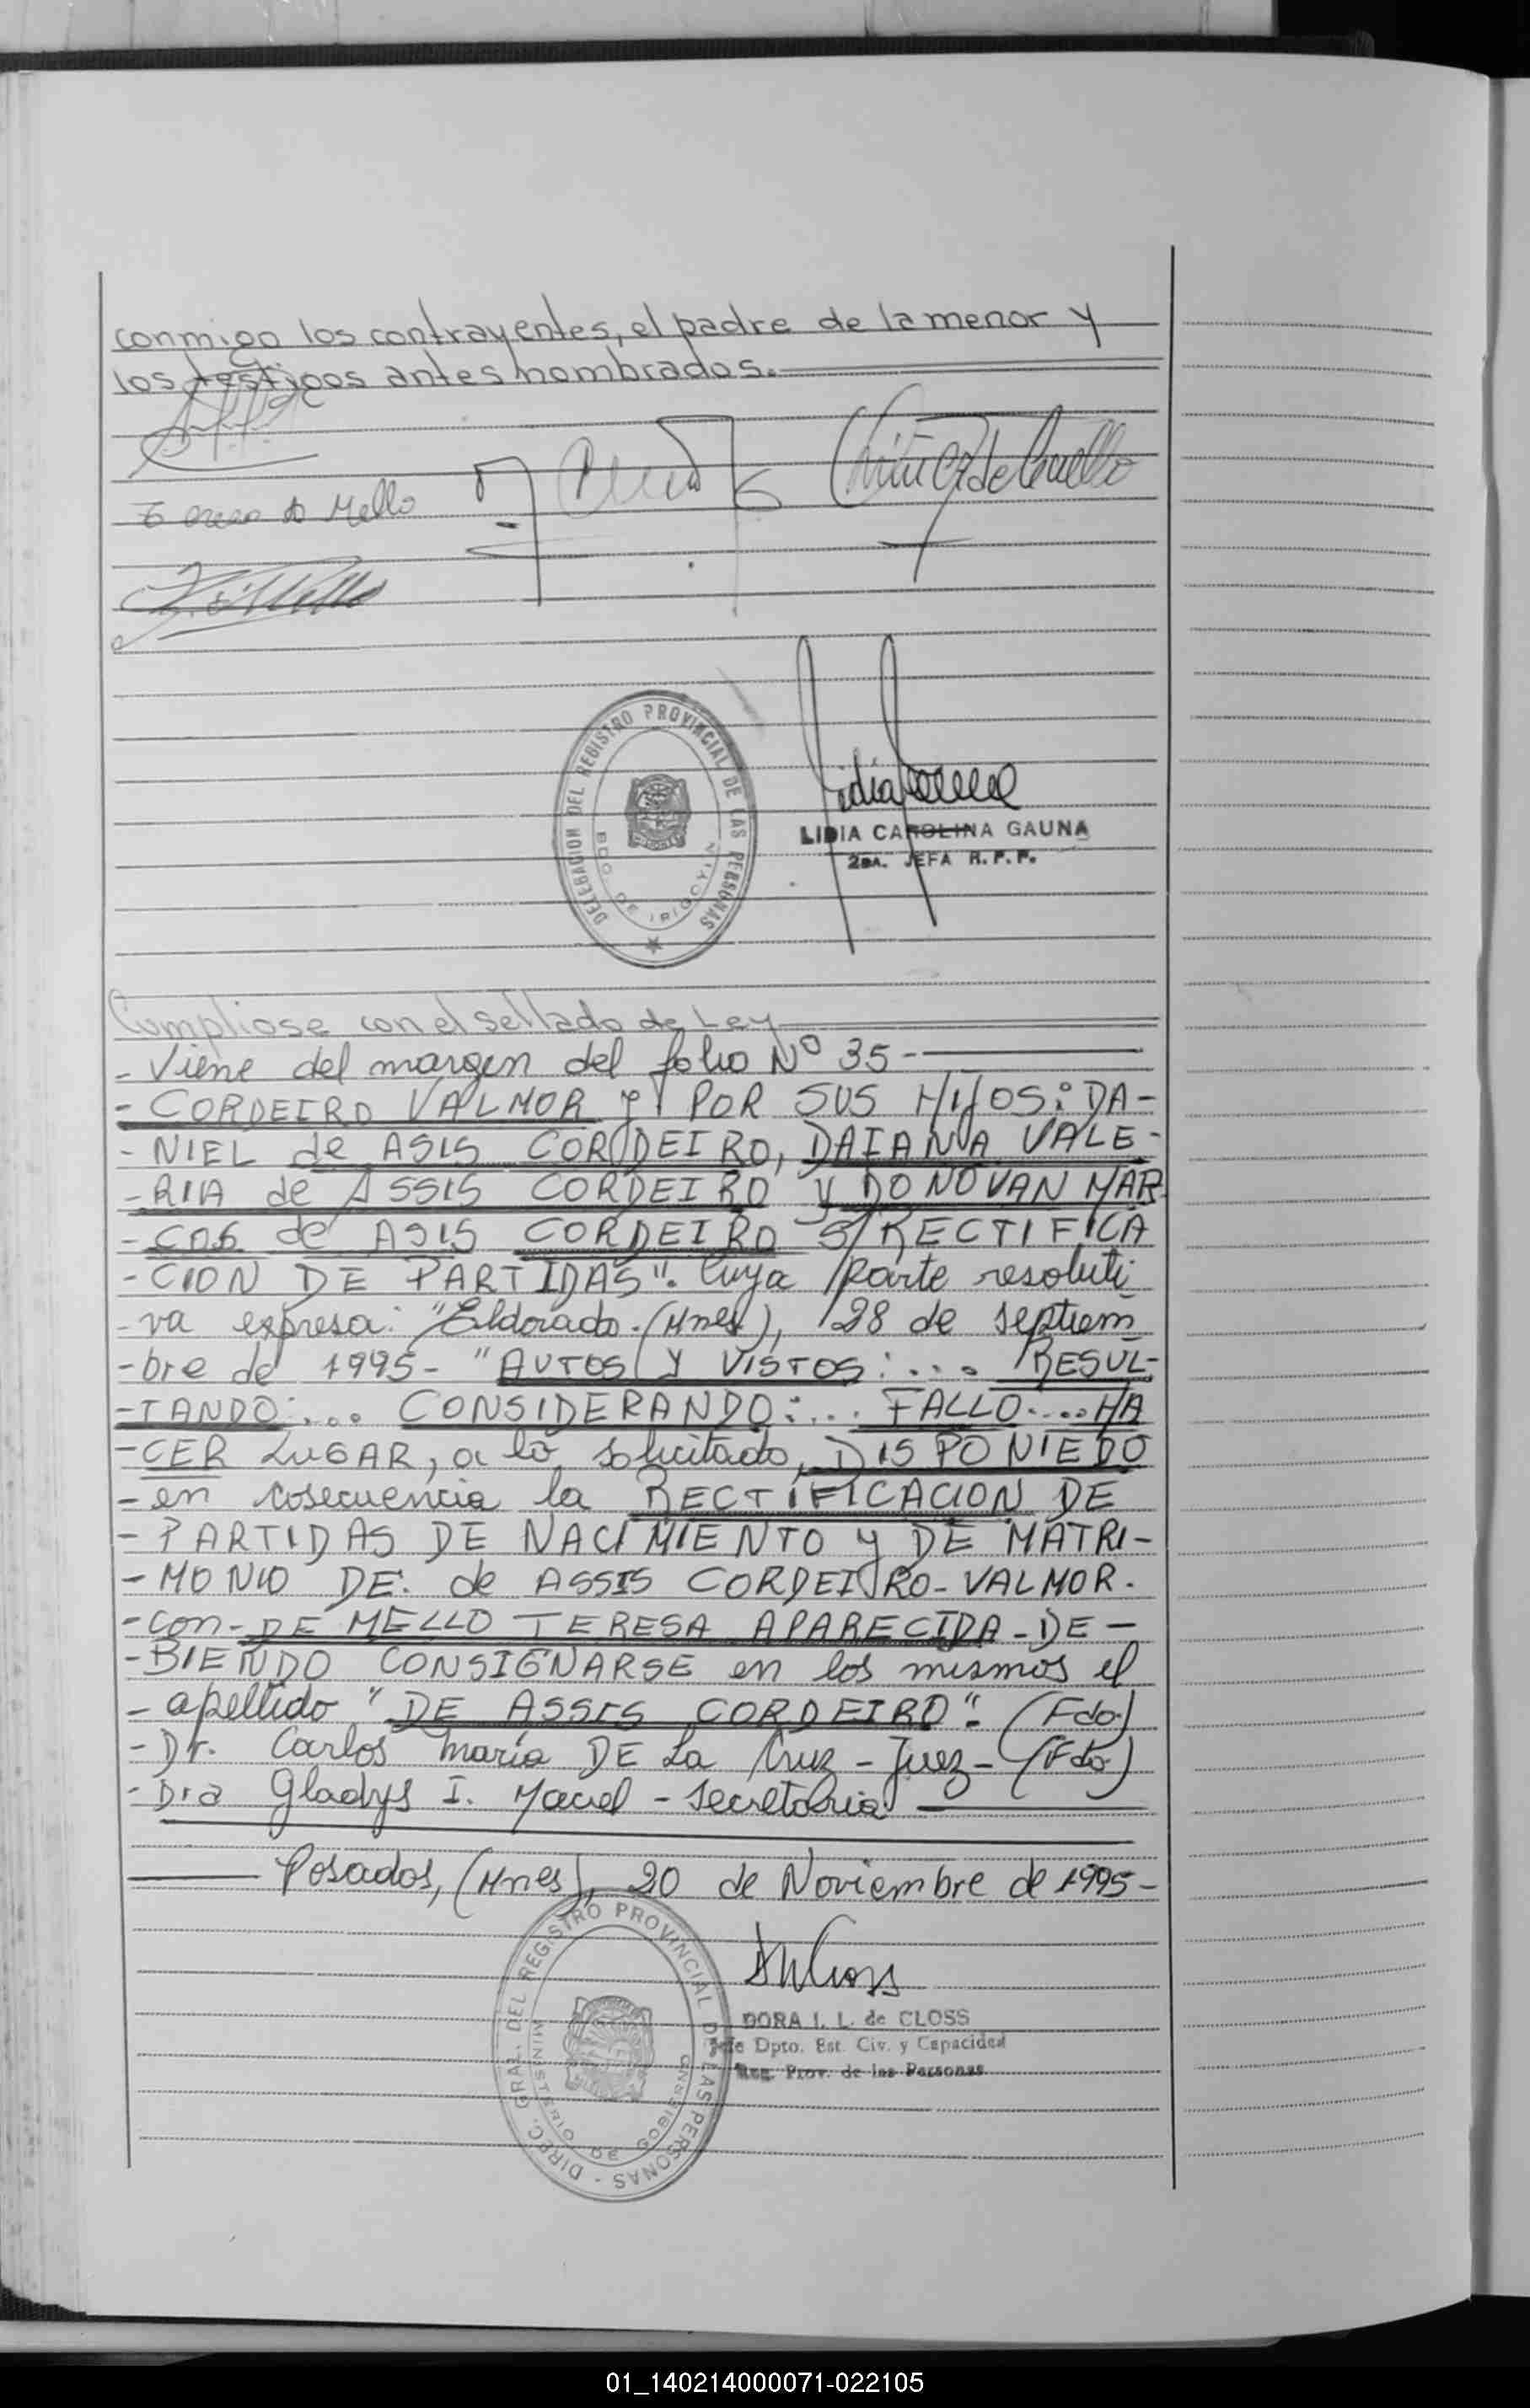 conmigo los contrayentes, el padre de la menor y
los testigos antes nombrados.
Mello
DELEGACION DEL REGISTRO PROVINCIAL DE LAS PERSONAS
BDO. DE IRIGOYEN
LIDIA CAROLINA GAUNA
2DA. JEFA R. P. P.
Cumpliose con el sellado de Ley
- Viene del margen del folio Nº 35 -
- CORDEIRO VALMOR y POR SUS HIJOS: DA-
- NIEL de ASIS CORDEIRO, DAIANA VALE-
- RIA de ASSIS CORDEIRO y DONOVAN MAR
- COS de ASIS CORDEIRO S/RECTIFICA
- CION DE PARTIDAS". Cuya parte resoluti
- va expresa: "Eldorado. (Mnes), 28 de septiem
- bre de 1995- "AUTOS Y VISTOS:.... RESUL-
- TANDO:... CONSIDERANDO:... FALLO.... HA
- CER LUGAR, a lo solicitado, DISPONIEDO
- en cosecuencia la RECTIFICACION DE
- PARTIDAS DE NACIMIENTO y DE MATRI-
- MONIO DE: de ASSIS CORDEIRO-VALMOR.
- con-DE MELLO TERESA APARECIDA-DE-
- BIENDO CONSIGNARSE en los mismos el
- apellido "DE ASSIS CORDEIRO". (Fdo)
- Dr. Carlos María DE La Cruz - Juez - (Fdo)
- Dra Gladys I. Maciel - Secretaria
Posadas, (Mnes), 20 de Noviembre de 1995-
DIREC. GRAL. DEL REGISTRO PROVINCIAL DE LAS PERSONAS -
MINISTERIO DE GOBIERNO
DORA I. L. de CLOSS
Jefe Dpto. Est. Civ. y Capacidad
Reg. Prov. de las Personas
01_140214000071-022105